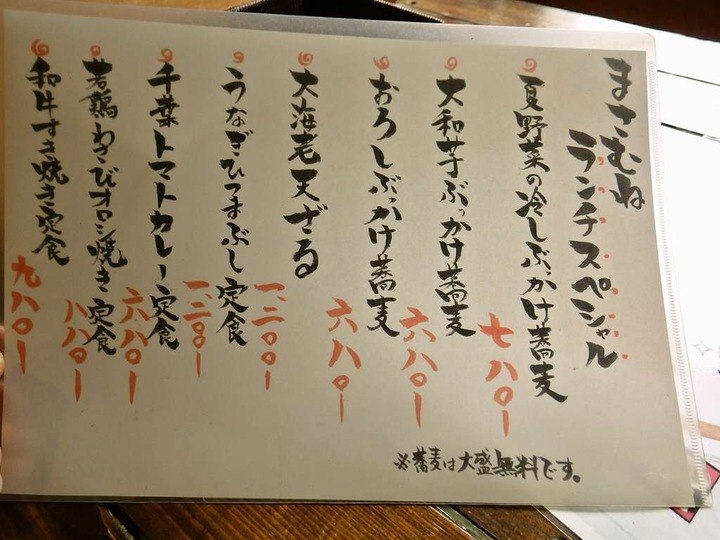 まさむね
ランチスペシャル
夏野菜の冷しぶっかけ蕎麦
七八〇ー
大和芋ぶっかけ蕎麦
六八〇ー
おろしぶっかけ蕎麦
六八〇ー
大海老天ざる
一、二〇〇ー
うなぎひつまぶし定食
一、二〇〇ー
千葉トマトカレー定食
六八〇ー
若鶏わさびオロシ焼き定食
八八〇ー
和牛すき焼き定食
九八〇ー
※蕎麦は大盛無料です。